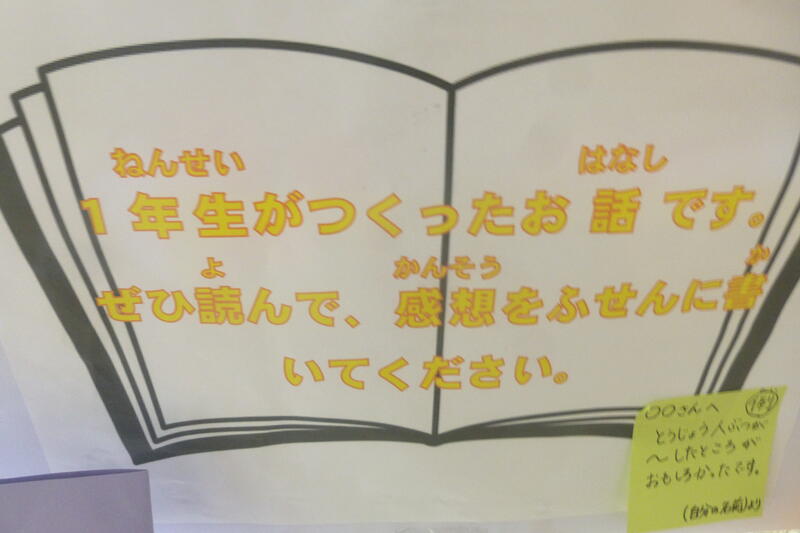 ねんせい はなし
1年生がつくったお話です。
よ かんそう か
ぜひ読んで、感想をふせんに書
いてください。
〇〇さんへ
とうじょう人ぶつが
〜したところが
おもしろかったです。
(自分の名前)より